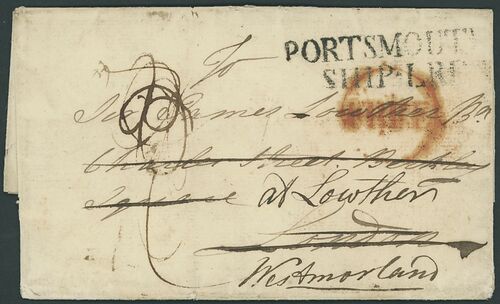 PORTSMOUTH
SHIP-LRE
To
Sir James Lowther Bt
Charles Street Berkley
Square at Lowther
London
Westmorland